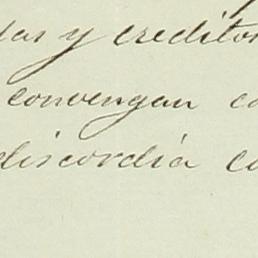 y creditos
convengan co
discordia co